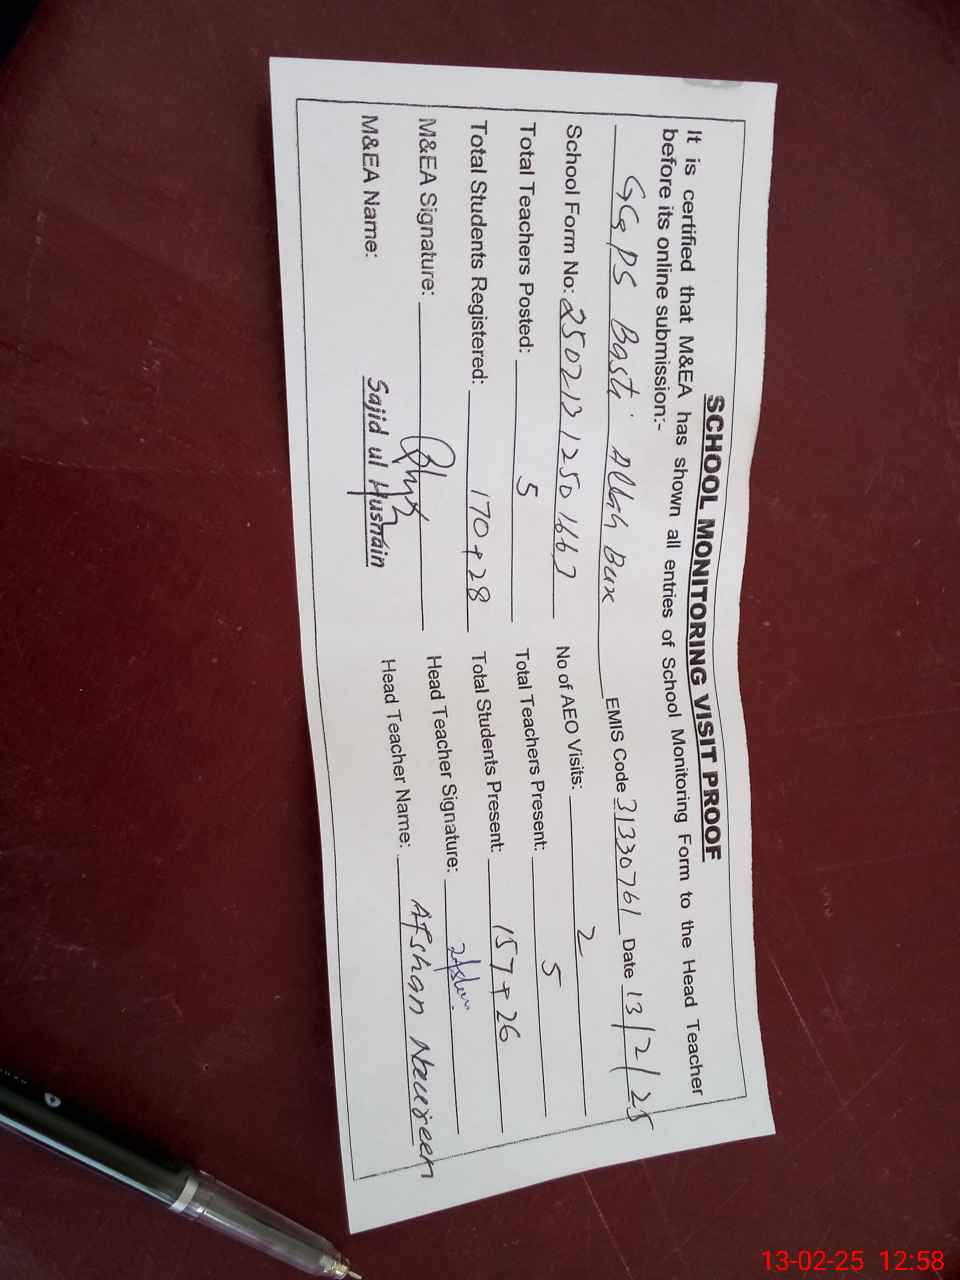 SCHOOL MONITORING VISIT PROOF
It is certified that M&EA has shown all entries of School Monitoring Form to the Head Teacher
before its online submission:-
GGPS Basti Allah Bux EMIS Code 31330761 Date 13/2/25
School Form No: 25021312501667 No of AEO Visits: 2
Total Teachers Posted: 5 Total Teachers Present: 5
Total Students Registered: 170+28 Total Students Present: 157+26
M&EA Signature: Head Teacher Signature:
M&EA Name: Sajid ul Husnain Head Teacher Name: Afshan Noureen
13-02-25 12:58